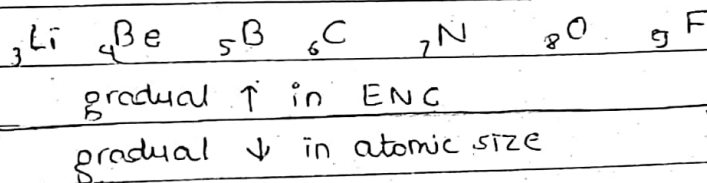 ₃Li ₄Be ₅B ₆C ₇N ₈O ₉F
gradual ↑ in ENC
gradual ↓ in atomic size